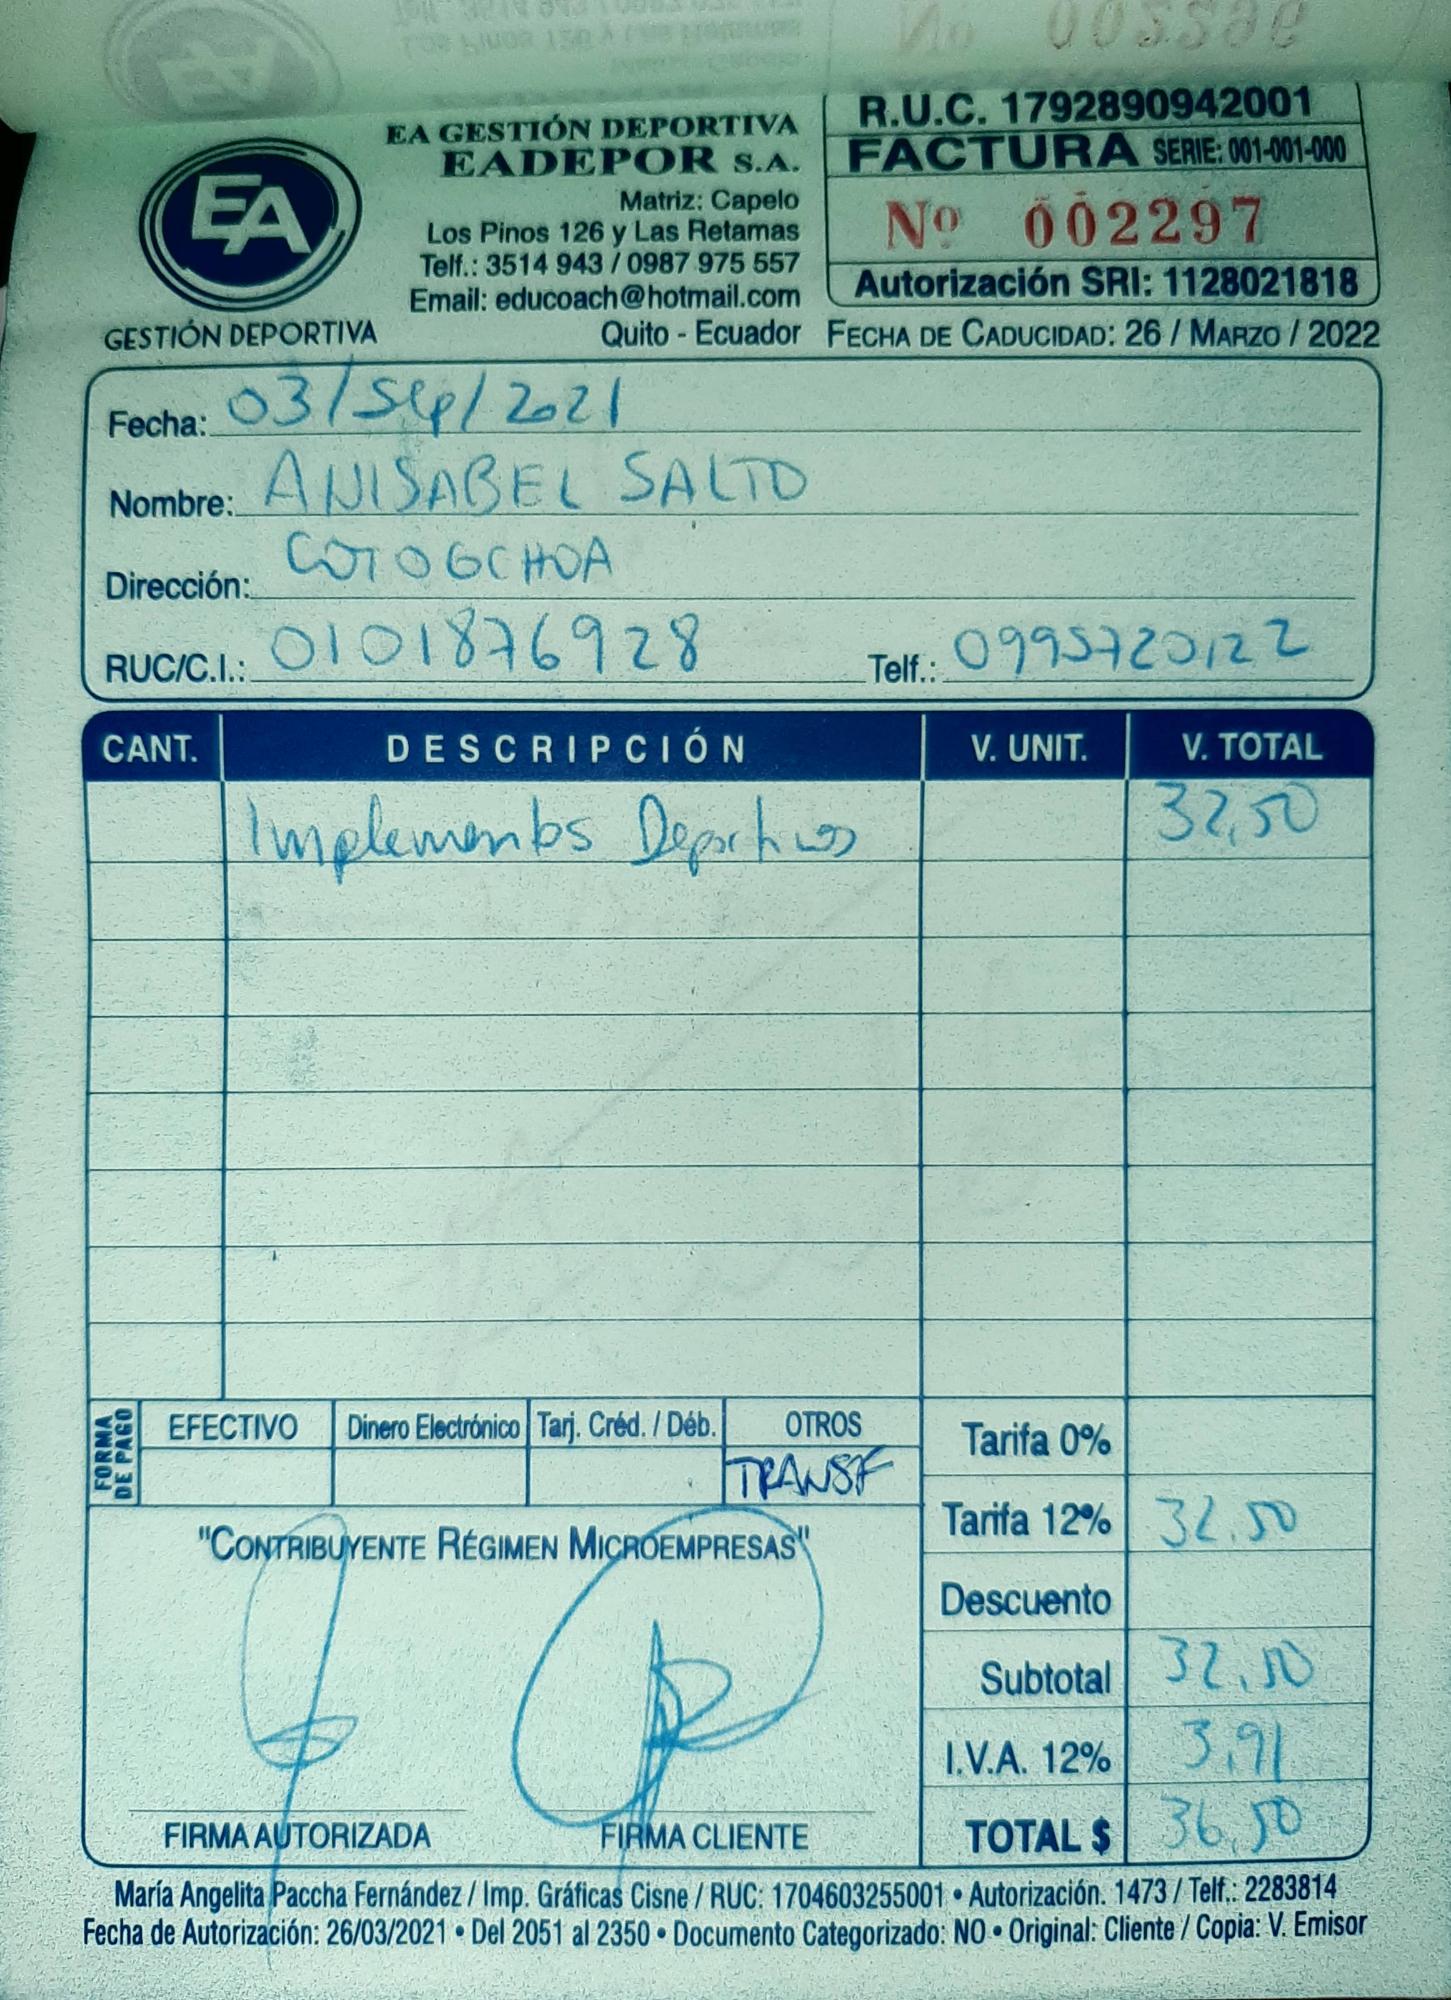 EA GESTIÓN DEPORTIVA
EADEPOR S.A.
Matriz: Capelo
Los Pinos 126 y Las Retamas
Telf.: 3514 943 / 0987 975 557
Email: educoach@hotmail.com
Quito - Ecuador
EA
GESTIÓN DEPORTIVA
R.U.C. 1792890942001
FACTURA SERIE: 001-001-000
Nº 002297
Autorización SRI: 1128021818
FECHA DE CADUCIDAD: 26 / MARZO / 2022
Fecha: 03/Sep/2021
Nombre: ANISABEL SALTO
Dirección: COTOGCHOA
RUC/C.I.: 0101876928 Telf.: 0995720122
CANT. DESCRIPCIÓN V. UNIT. V. TOTAL
Implementos Deportivos 32,50
FORMA DE PAGO
EFECTIVO Dinero Electrónico Tarj. Créd. / Déb. OTROS
TRANSF
Tarifa 0%
Tarifa 12% 32.50
Descuento
Subtotal 32,50
I.V.A. 12% 3,91
TOTAL $ 36,50
"CONTRIBUYENTE RÉGIMEN MICROEMPRESAS"
FIRMA AUTORIZADA FIRMA CLIENTE
María Angelita Paccha Fernández / Imp. Gráficas Cisne / RUC: 1704603255001 • Autorización. 1473 / Telf.: 2283814
Fecha de Autorización: 26/03/2021 • Del 2051 al 2350 • Documento Categorizado: NO • Original: Cliente / Copia: V. Emisor